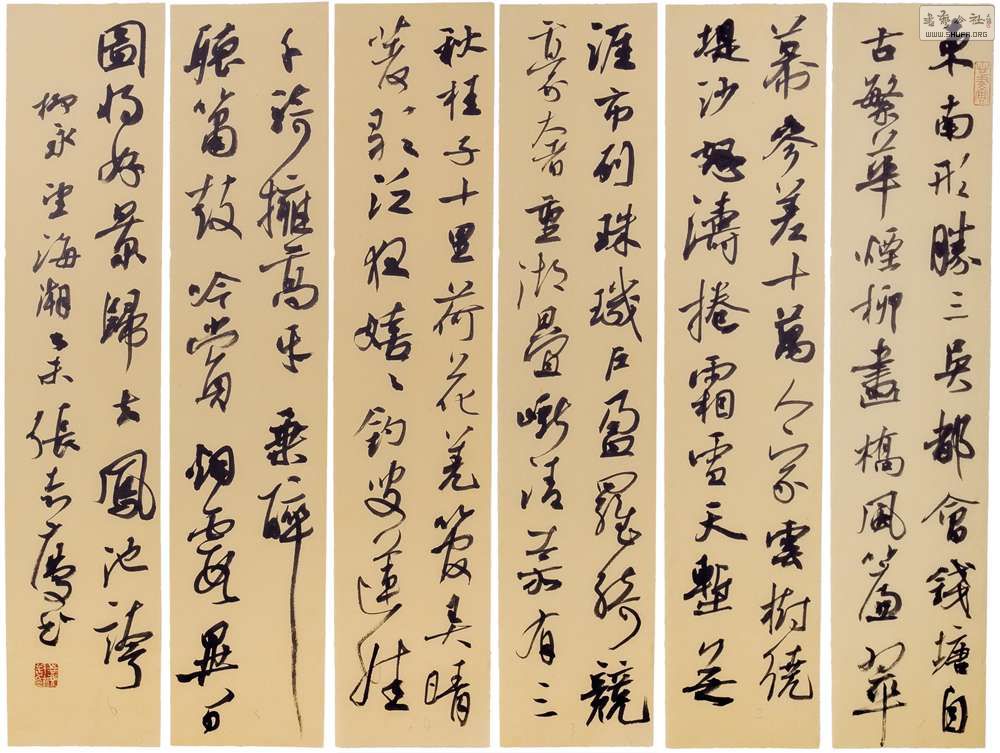 東南形勝三吳都會錢塘自
古繁華煙柳畫橋風簾翠
幕參差十萬人家雲樹繞
堤沙怒濤捲霜雪天塹無
涯市列珠璣戶盈羅綺競
豪奢重湖疊巘清嘉有三
秋桂子十里荷花羌管弄晴
菱歌泛夜嬉〻釣叟蓮娃
千騎擁高牙乘醉
聽簫鼓吟賞烟霞異日
圖將好景歸去鳳池誇
柳永望海潮乙未張志慶書
WWW.SHUFA.ORG